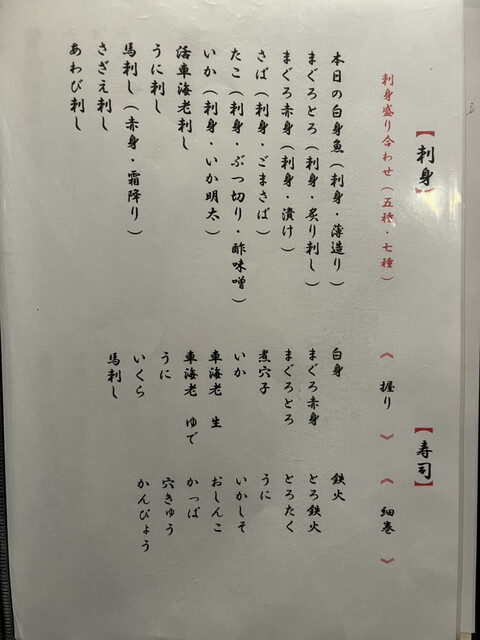 【刺身】
刺身盛り合わせ（五種・七種）
本日の白身魚（刺身・薄造り）
まぐろとろ（刺身・炙り刺し）
まぐろ赤身（刺身・漬け）
さば（刺身・ごまさば）
たこ（刺身・ぶつ切り・酢味噌）
いか（刺身・いか明太）
活車海老刺し
うに刺し
馬刺し（赤身・霜降り）
さざえ刺し
あわび刺し
【寿司】
《握り》
白身
まぐろ赤身
まぐろとろ
煮穴子
いか
車海老 生
車海老 ゆで
うに
いくら
馬刺し
《細巻》
鉄火
とろ鉄火
とろたく
うに
いかしそ
おしんこ
かっぱ
穴きゅう
かんぴょう